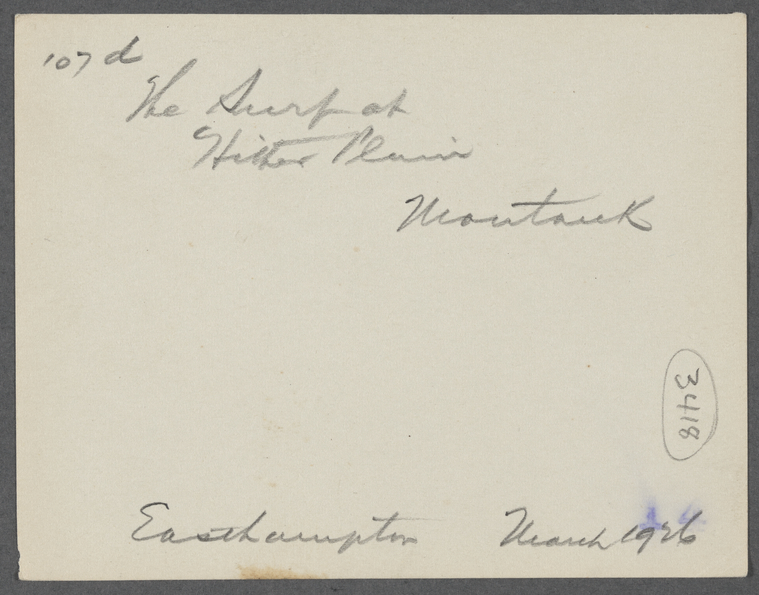 107 d
The Surf at
Hither Plain
Montauk
3418
Easthampton March 1926